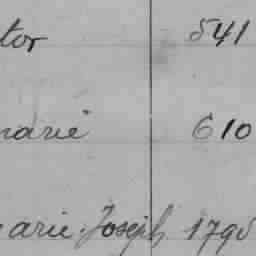 tor 541
marie 610
marie Joseph 1795